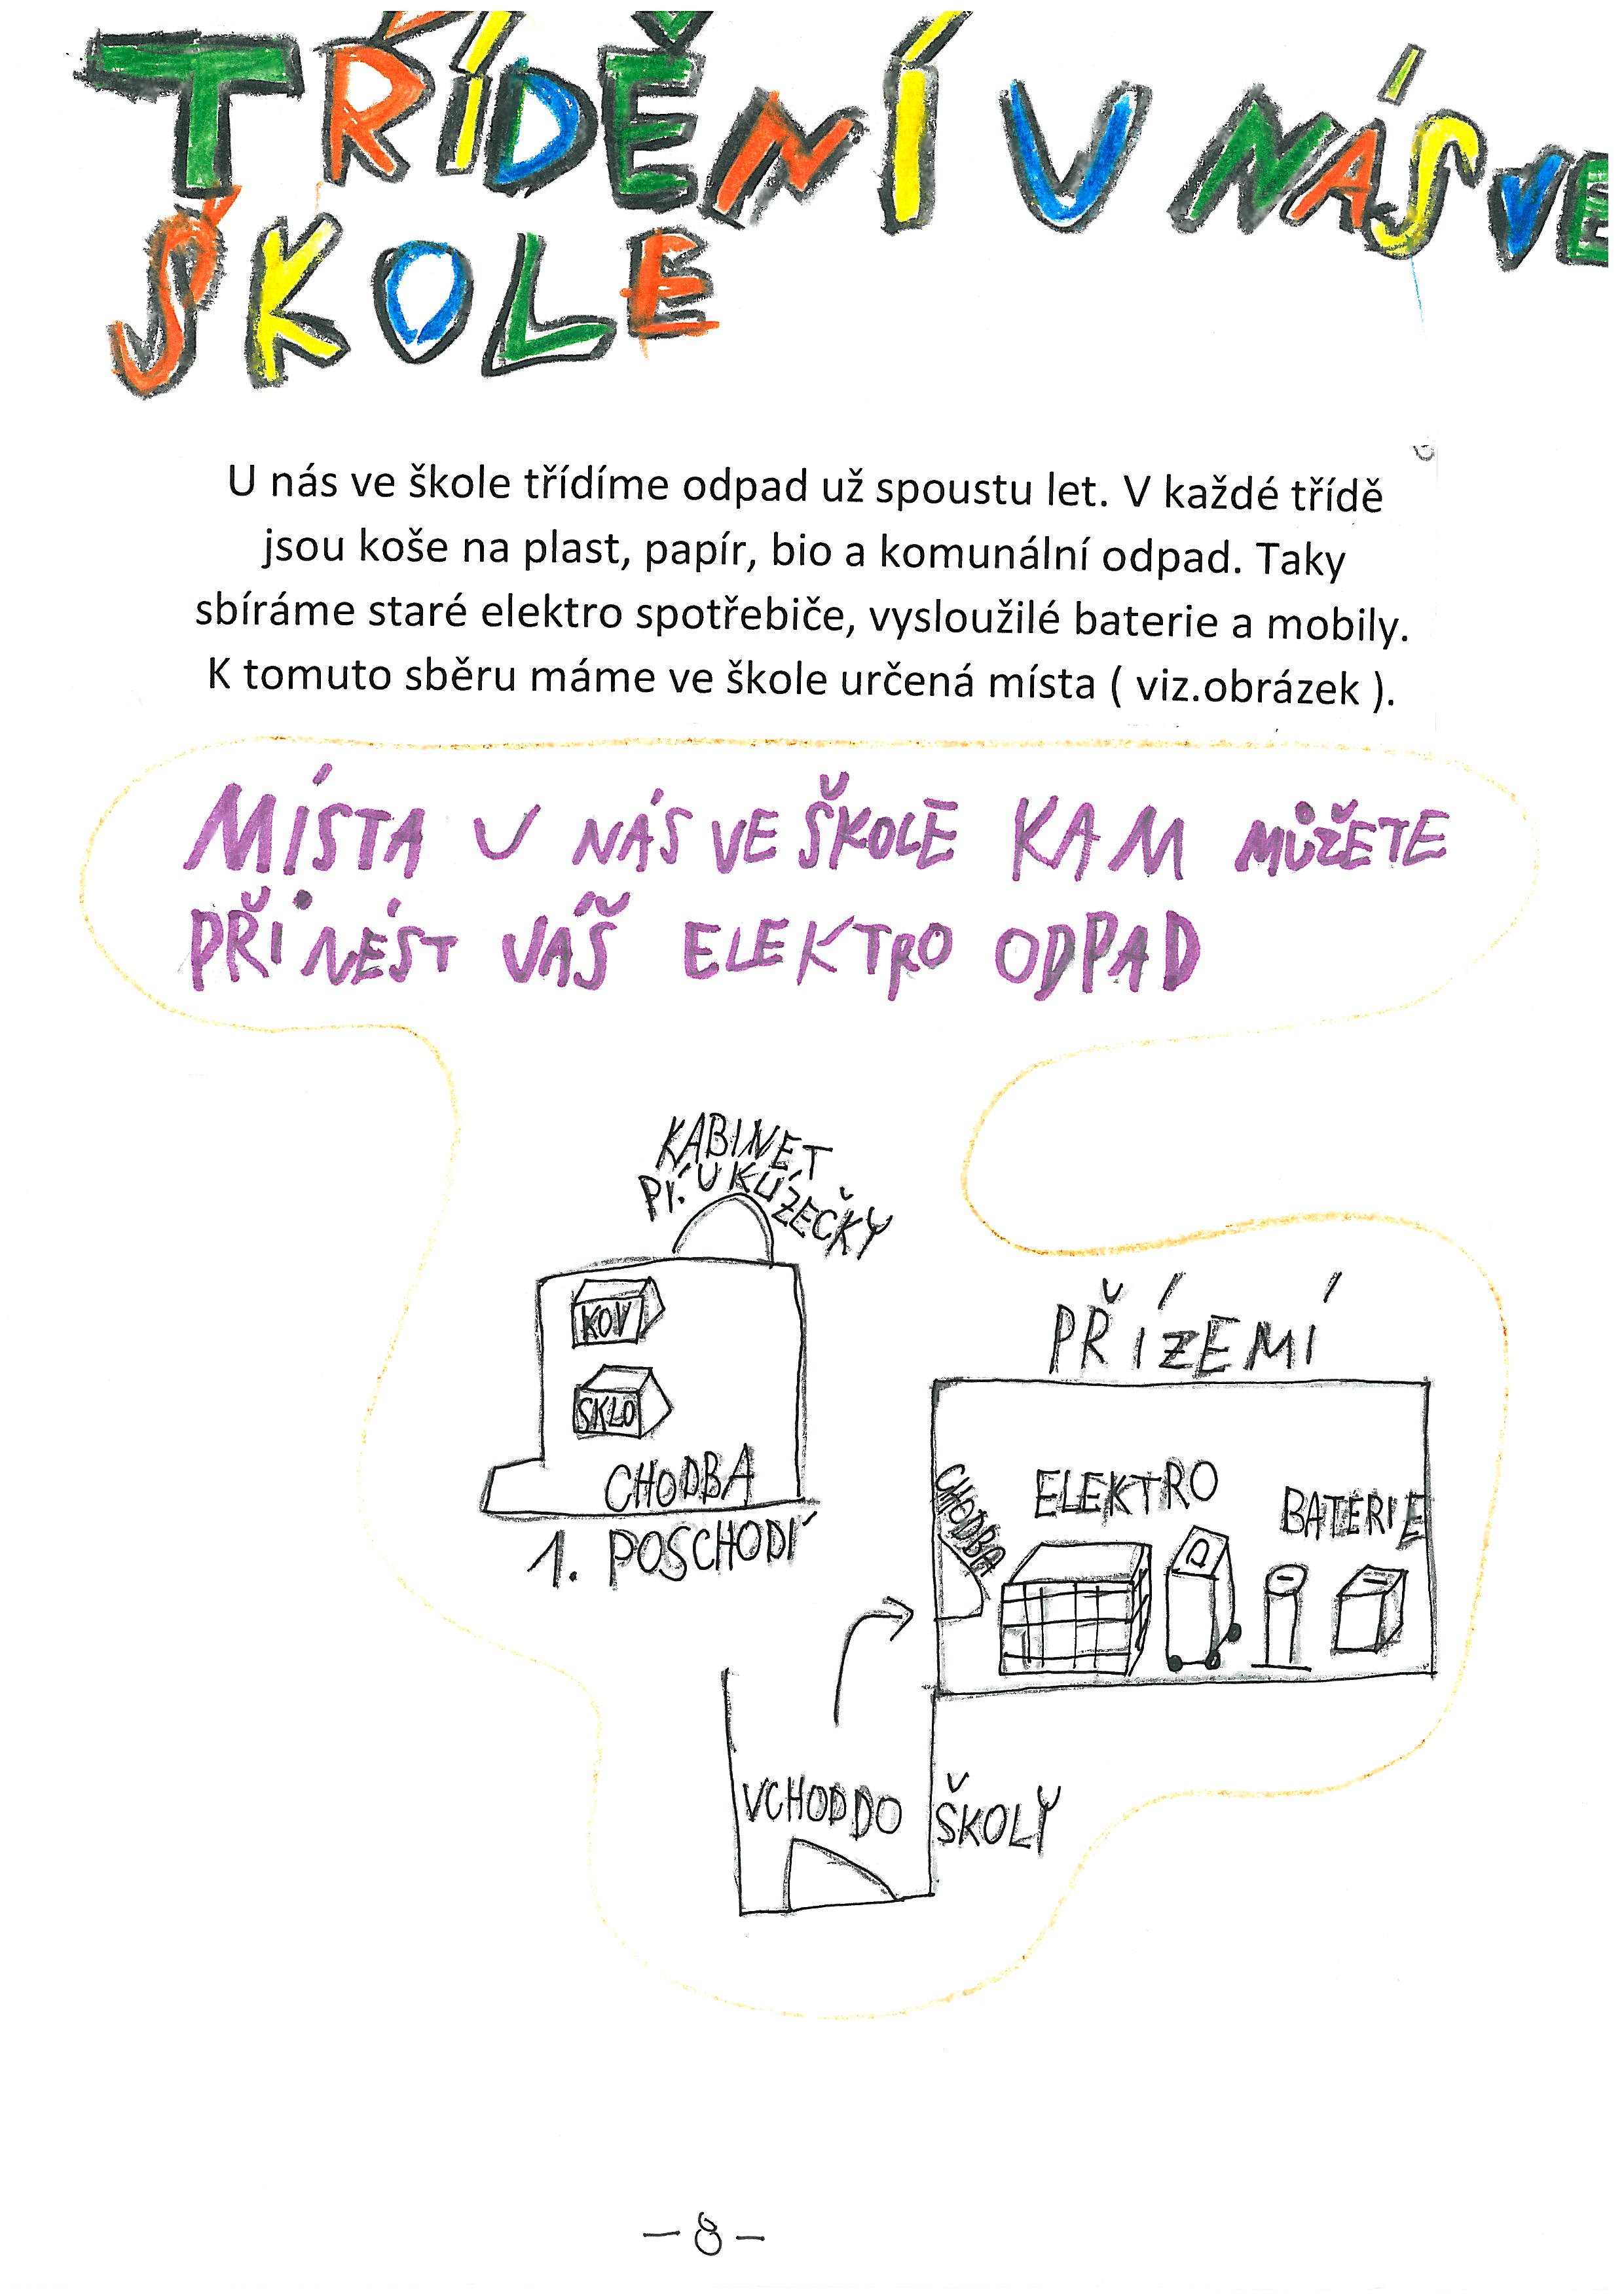 TŘÍDĚNÍ U NÁS VE
ŠKOLE
U nás ve škole třídíme odpad už spoustu let. V každé třídě
jsou koše na plast, papír, bio a komunální odpad. Taky
sbíráme staré elektro spotřebiče, vysloužilé baterie a mobily.
K tomuto sběru máme ve škole určená místa ( viz.obrázek ).
MÍSTA U NÁS VE ŠKOLE KAM MŮŽETE
PŘINÉST VÁŠ ELEKTRO ODPAD
KABINET
PÍ. UKÚZEČKY
KOV
SKLO
CHODBA
1. POSCHODÍ
PŘÍZEMÍ
CHODBA
ELEKTRO
BATERIE
VCHOD DO ŠKOLY
- 8 -